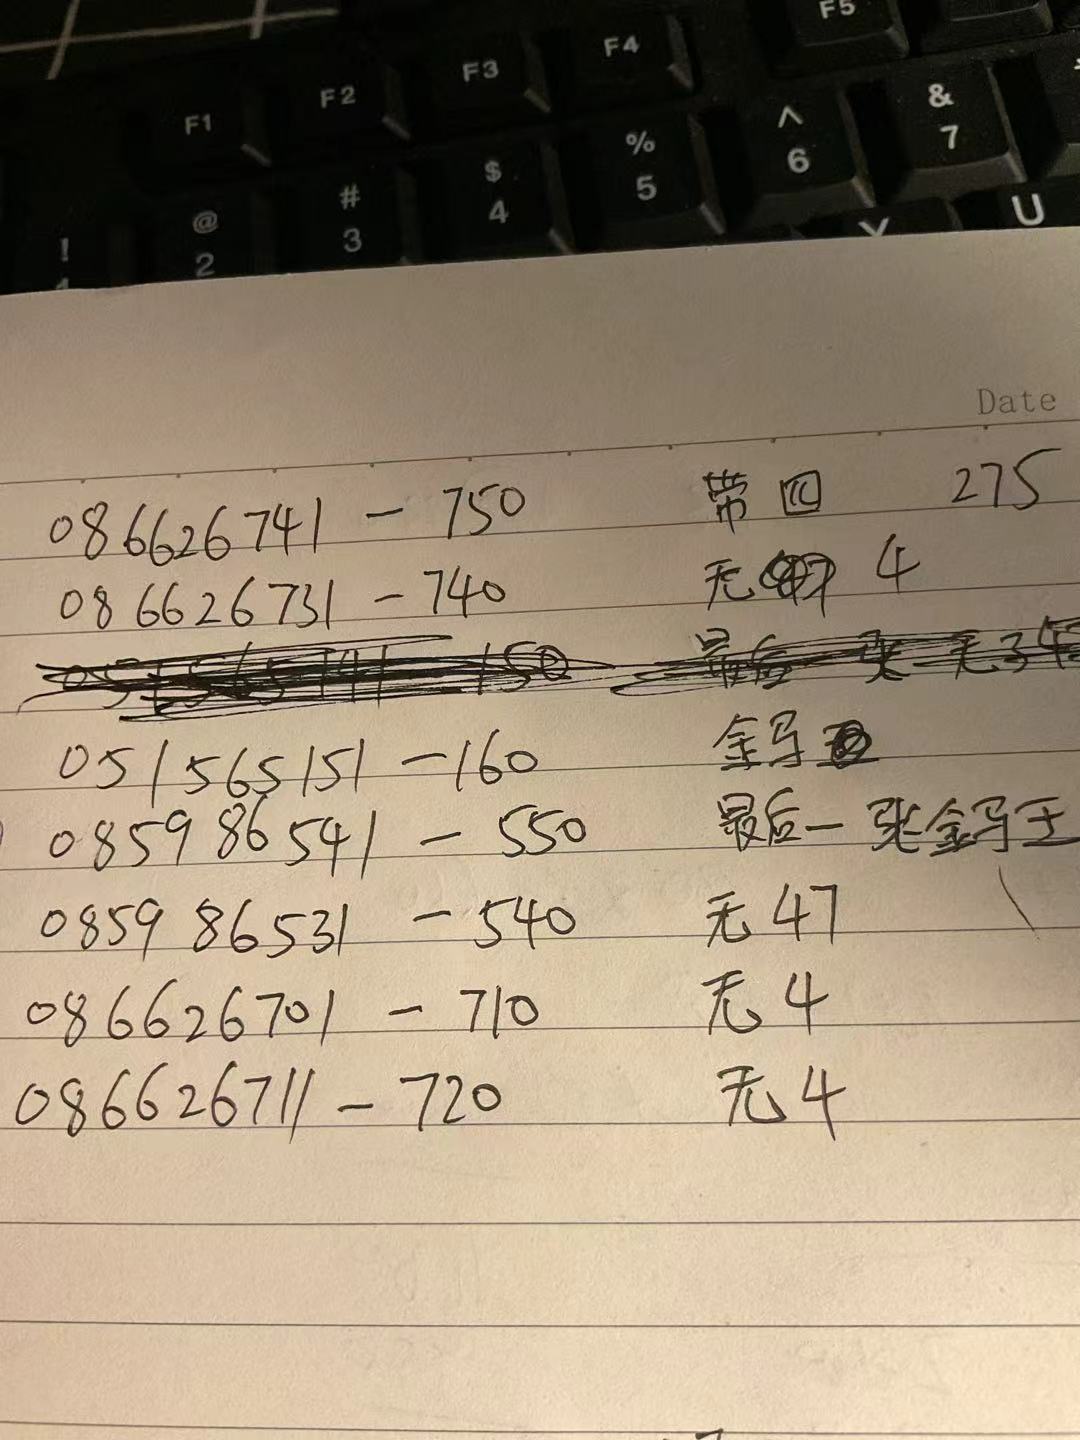 F5
F4
F3
F2
F1
& 7
^ 6
% 5
$ 4
# 3
@ 2
!
U
Y
Date
086626741 - 750 带四 275
086626731 - 740 无 4
051565151 - 160 金马王
085986541 - 550 最后一张金马王
085986531 - 540 无 47
086626701 - 710 无 4
086626711 - 720 无 4